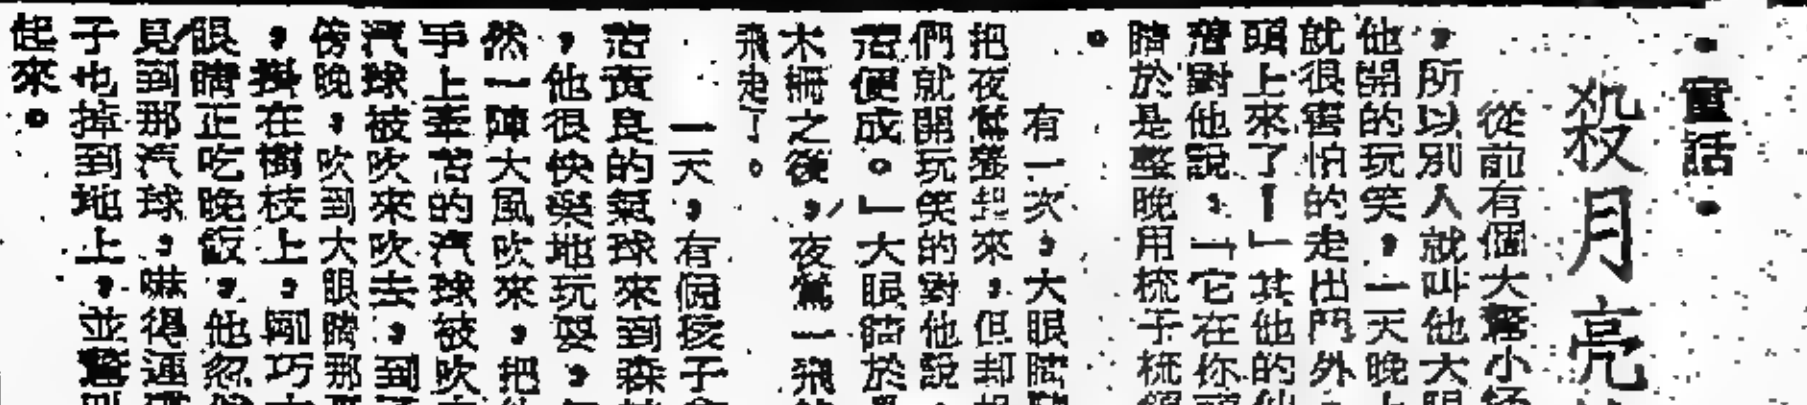 •童話•
殺月亮
從前有個大驚小
，所以別人就叫他大眼
他開的玩笑，一天晚上
就很害怕的走出門外，
頭上來了！」其他的仙
着對他說：「它在你頭
睛於是整晚用梳子梳
。
有一次，大眼睛
把夜鶯養起來，但却
們就開玩笑的對他說：
活便成。」大眼睛於
木柵之後，夜鶯一飛
飛走了。
一天，有個孩子
着黃良的氣球來到森
，他很快樂地玩耍，
然一陣大風吹來，把
手上牽着的汽球被吹
汽球被吹來吹去，到
傍晚，吹到大眼睛那
，掛在樹枝上，剛巧
眼睛正吃晚飯，他忽然
見到那汽球，嚇得連
子也掉到地上，並驚叫
起來。